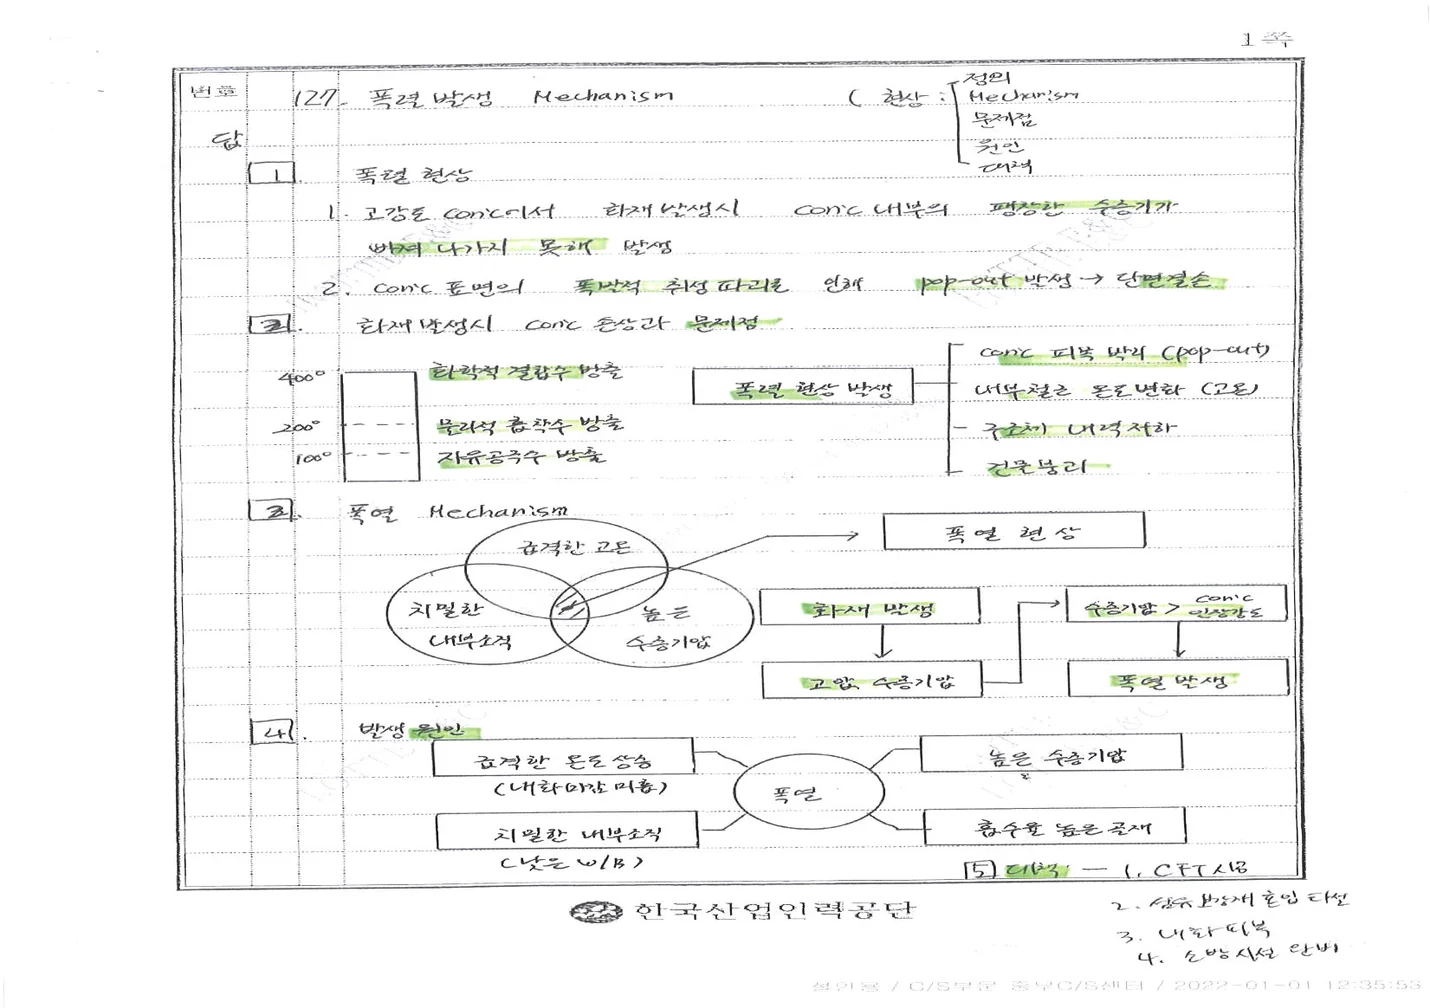 1쪽
번호
127. 폭렬 발생 Mechanism ( 현상 :
정의
Mechanism
문제점
원인
대책
답
1. 폭렬 현상
1. 고강도 con'c에서 화재 발생시 con'c 내부의 팽창한 수증기가
빠져 나가지 못해 발생
2. con'c 표면의 폭발적 취성파괴로 인해 pop-out 발생 → 단면결손
2. 화재 발생시 con'c 손상과 문제점
400° 화학적 결합수 방출
200° 물리적 흡착수 방출
100° 자유공극수 방출
폭렬 현상 발생
con'c 피복 박리 (pop-out)
내부철근 온도변화 (고온)
구조체 내력저하
건물붕괴
3. 폭열 Mechanism
급격한 고온
치밀한
내부조직
높은
수증기압
폭열 현상
화재 발생
고압 수증기압
수증기압 > con'c
인장강도
폭열 발생
4. 발생 원인
급격한 온도상승
(내화마감 미흡)
치밀한 내부조직
(낮은 W/B)
폭열
높은 수증기압
흡수율 높은 골재
5 대책 - 1. CFT 시공
2. 섬유보강재 혼입 타설
3. 내화피복
4. 소방시설 완비
한국산업인력공단
설인용 / C/S부문 중부C/S센터 / 2022-01-01 12:35:53